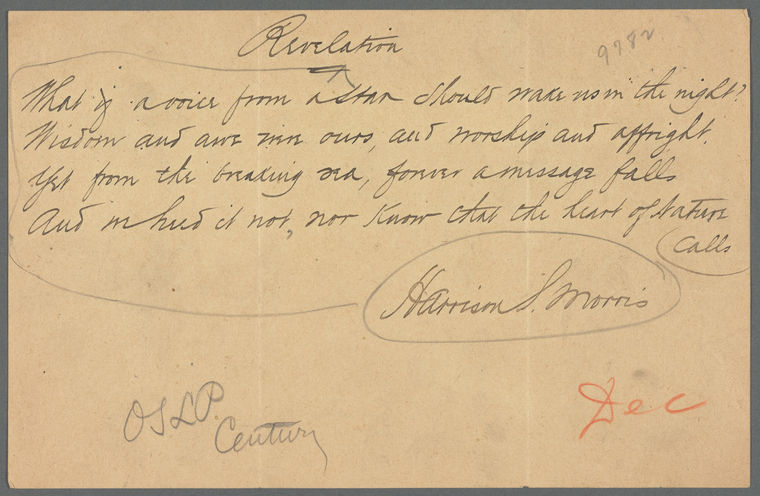 Revelation
9782
What if a voice from a star should wake us in the night?
Wisdom and awe were ours, and worship and affright.
Yet from the breaking sea, forever a message falls
And we heed it not, nor know that the heart of Nature
calls
Harrison S. Morris
OSLP.
Century
Dec